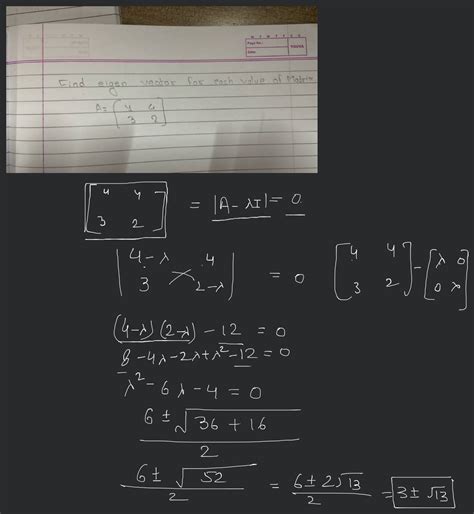 M T W T F S S
Page No.:
Date:
YOUVA
Find eigen vector for each value of Matrix
A = [4 6
3 2]
[4 4
3 2] = |A - λI| = 0
|4-λ 4
3 2-λ| = 0 [4 4
3 2] - [λ 0
0 λ]
(4-λ) (2-λ) - 12 = 0
8 - 4λ - 2λ + λ² - 12 = 0
λ² - 6λ - 4 = 0
6 ± √36 + 16
2
6 ± √52 / 2 = 6 ± 2√13 / 2 = 3 ± √13